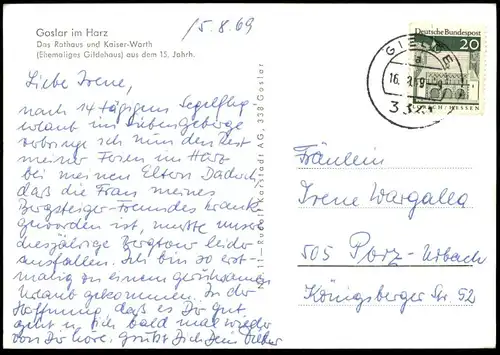 15.8.69
Goslar im Harz
Das Rathaus und Kaiser-Worth
(Ehemaliges Gildehaus) aus dem 15. Jahrh.
Liebe Irene,
nach 14 tägigem Segelflug
urlaub im Siebengebirge
verbringe ich nun den Rest
meiner Ferien im Harz
bei meinen Eltern Dadurch
daß die Frau meines
Bergsteiger-Freundes krank
geworden ist, mußte unsere
diesjährige Bergtour leider
ausfallen. Ich bin so erst-
malig zu einem geruhsamen
Urlaub gekommen. In der
Hoffnung, daß es Dir gut
geht u. ich bald mal wieder
von Dir höre. grüßt Dich Dein
Nr. 11 – Rudolf Karstadt AG, 338 Goslar
DEUTSCHE BUNDESPOST
20
LORSCH / HESSEN
16.
Fräulein
Irene Wargalla
505 Porz-Urbach
Königsberger Str. 52